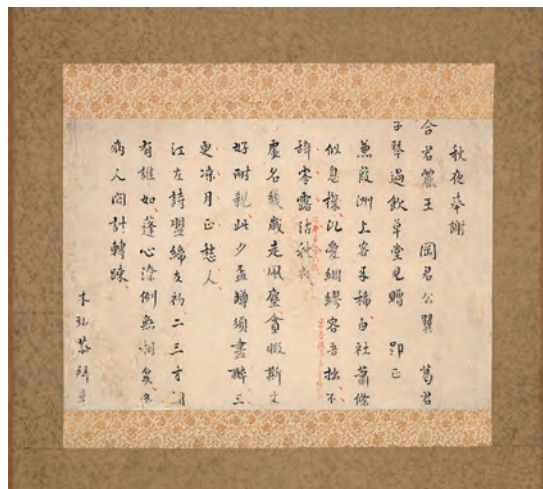 秋夜奉謝
合君麗王 岡君公翼 葛君
子琴過飲草堂見贈 即正
蒹葭洲上客来稀白社蕭條
似息機 愛綢繆容吾拙不
辞零露沾秋衣
虚名幾歳走風塵貪暇斯文
好耐親此夕盃樽須盡酔三
更凉月正愁人
江左詩盟締交初二三才調
有誰如蓬心潦倒無
病人間計轉踈
木弘恭拜